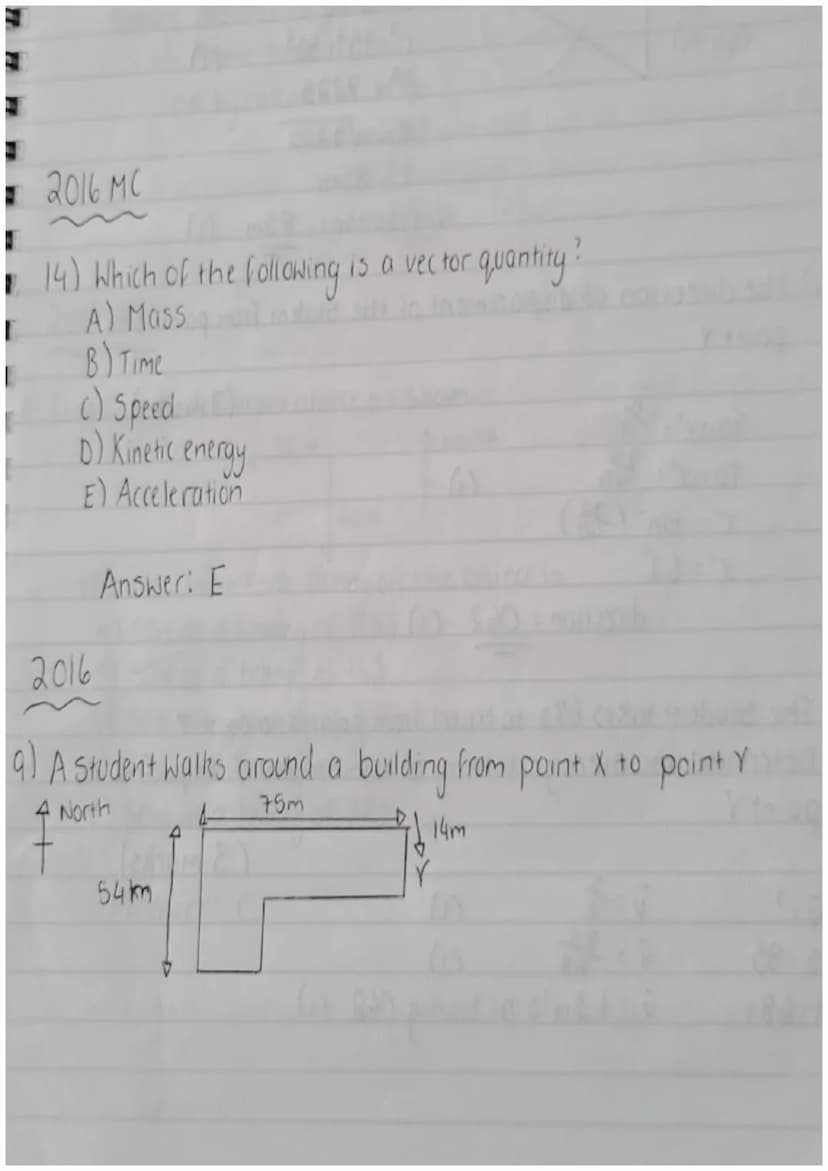 2016 MC
14) Which of the following is a vector quantity?
A) Mass
B) Time
C) Speed
D) Kinetic energy
E) Acceleration
Answer: E
2016
9) A student walks around a building from point X to point Y
North
75m
14m
Y
54km